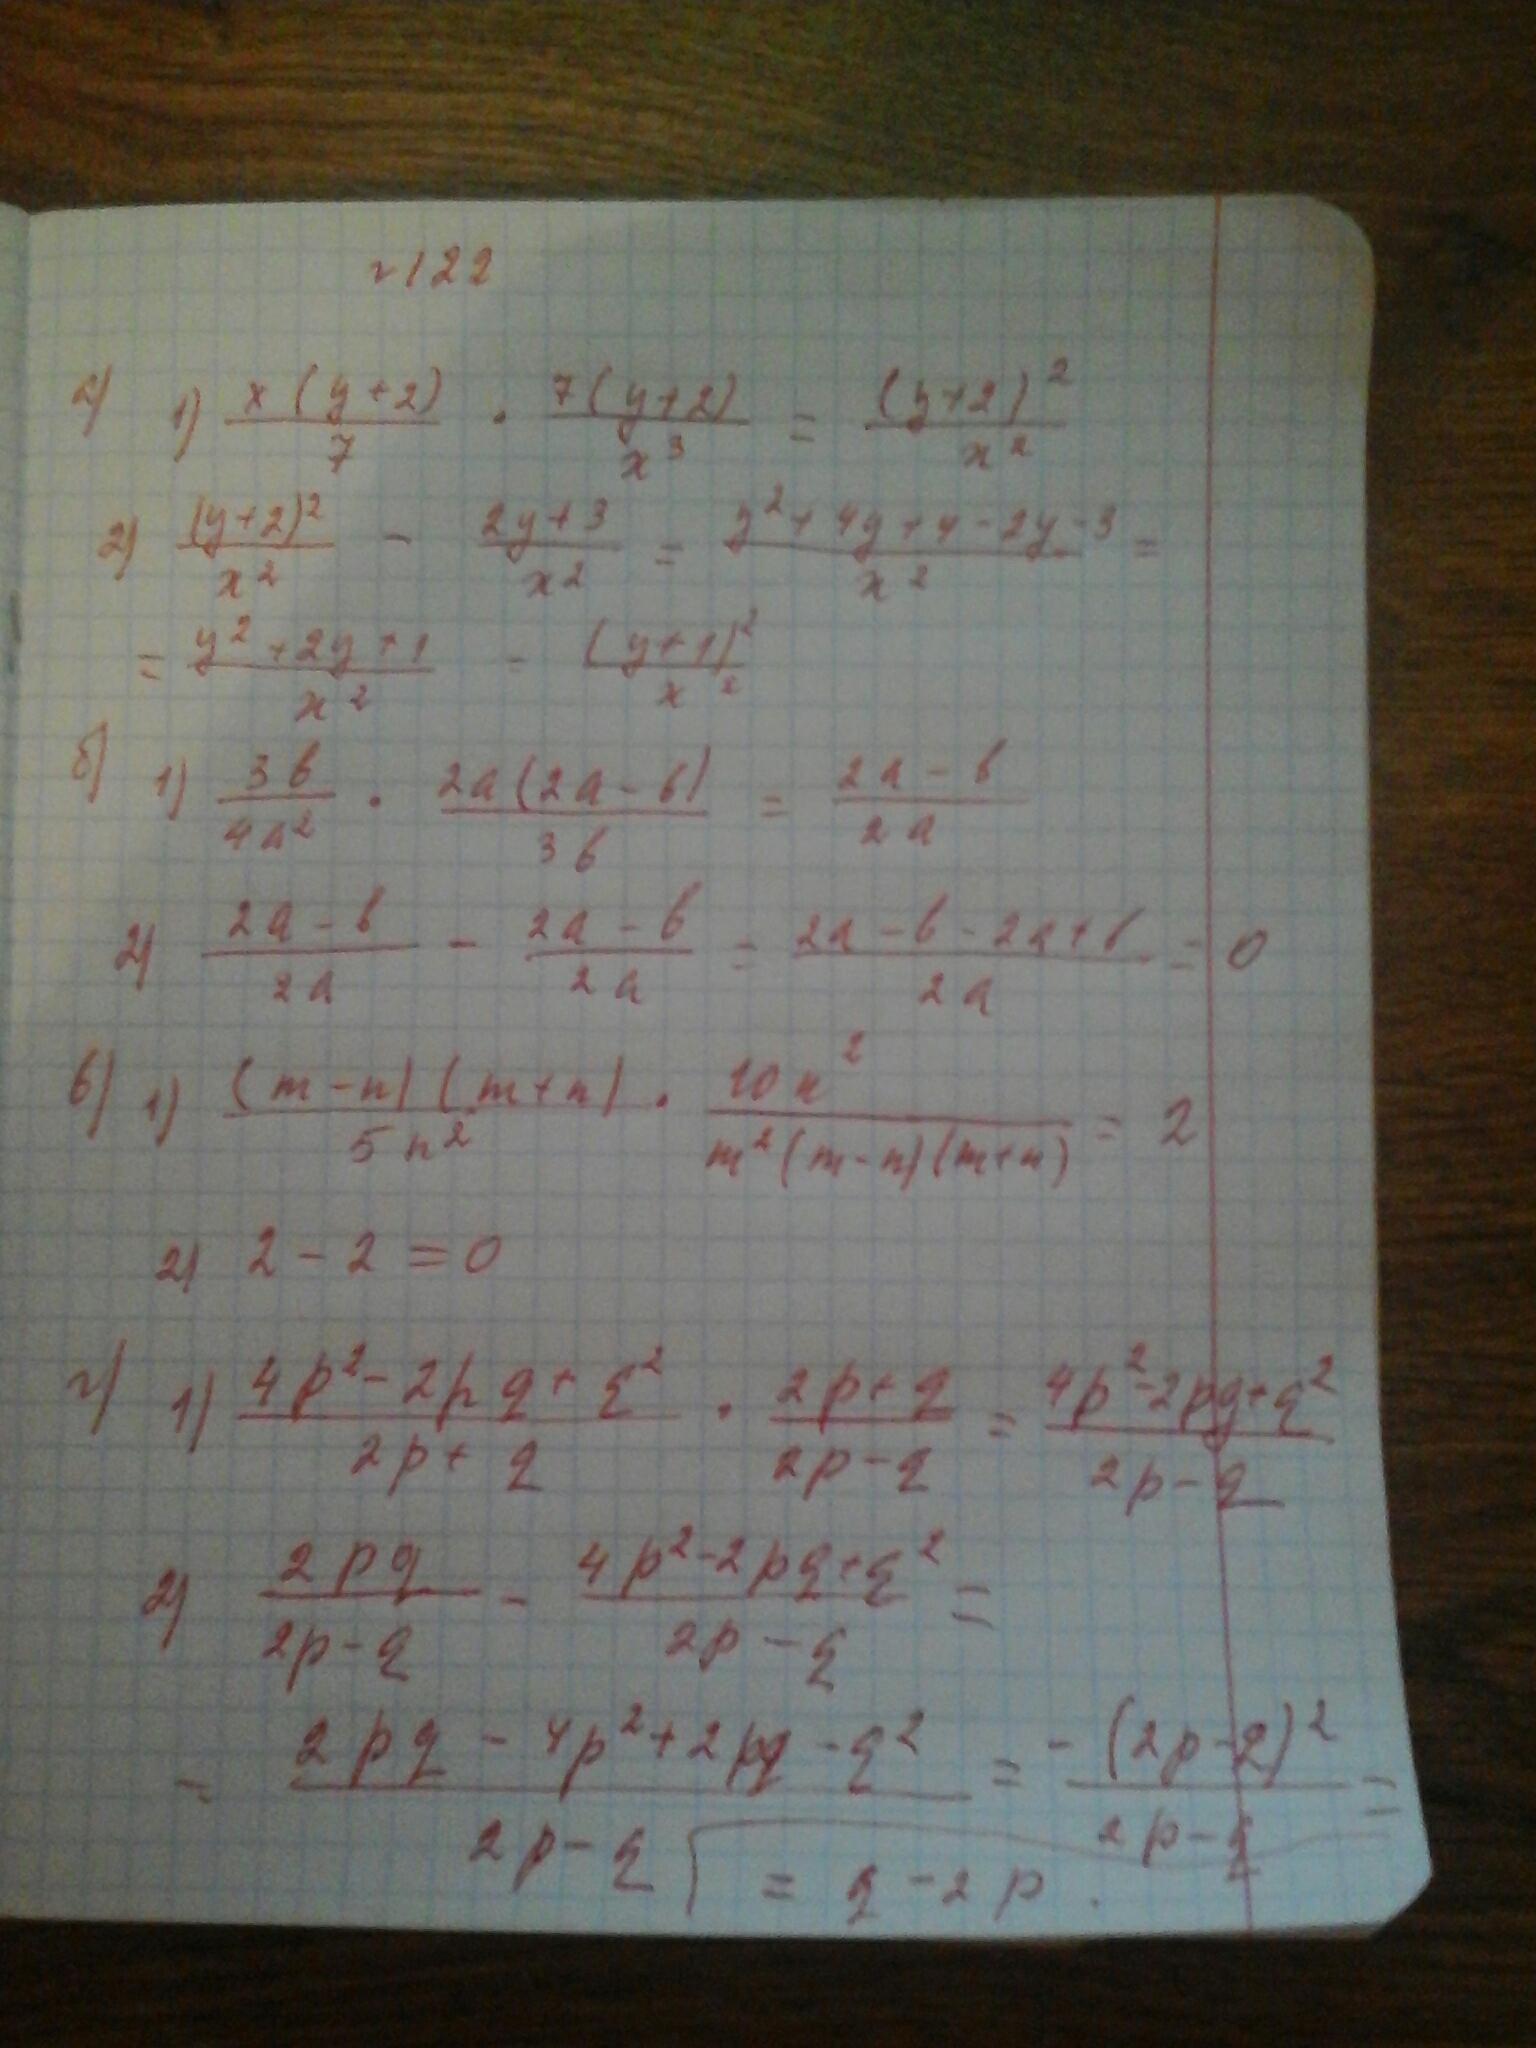 №122
а) 1) x(y+2)/7 · 7(y+2)/x³ = (y+2)²/x²
2) (y+2)²/x² - 2y+3/x² = y²+4y+4-2y-3/x² =
= y²+2y+1/x² = (y+1)²/x²
б) 1) 3b/4a² · 2a(2a-b)/3b = 2a-b/2a
2) 2a-b/2a - 2a-b/2a = 2a-b-2a+b/2a = 0
в) 1) (m-n)(m+n)/5n² · 10n²/m²(m-n)(m+n) = 2
2) 2-2=0
г) 1) 4p²-2pq+q²/2p+q · 2p+q/2p-q = 4p²-2pq+q²/2p-q
2) 2pq/2p-q - 4p²-2pq+q²/2p-q =
= 2pq-4p²+2pq-q²/2p-q = -(2p-q)²/2p-q =
= q-2p.